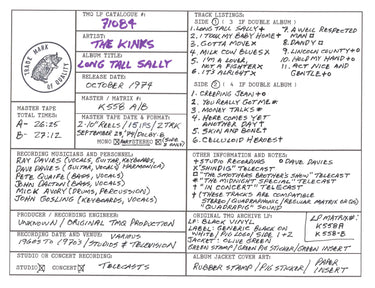 TMQ LP CATALOGUE #:
71084
ARTIST:
THE KINKS
ALBUM TITLE:
LONG TALL SALLY
RELEASE DATE:
OCTOBER 1974
MASTER / MATRIX #:
K558 A/B
TRADE MARK OF QUALITY
MASTER TAPE
TOTAL TIMES:
A- 26:25
B- 27:12
MASTER TAPE DATE & FORMAT:
2-10" REELS / 15 IPS / 2 TRK
MONO STEREO
TRACK LISTINGS:
SIDE 1 ( 3 IF DOUBLE ALBUM )
1. LONG TALL SALLY
2. I TOOK MY BABY HOME
3. GOTTA MOVE
4. MILK COW BLUES
5. I'M A LOVER,
NOT A FIGHTER
6. IT'S ALRIGHT
7. A WELL RESPECTED
MAN
8. DANDY
9. LINCOLN COUNTY
10. HOLD MY HAND
11. ACT NICE AND
GENTLE
SIDE 2 ( 4 IF DOUBLE ALBUM )
1. CREEPING JEAN
2. YOU REALLY GOT ME
3. MONEY TALKS
4. HERE COMES YET
ANOTHER DAY
5. SKIN AND BONE
6. CELLULOID HEROES
RECORDING MUSICIANS AND PERSONNEL:
RAY DAVIES (VOCALS, GUITAR, KEYBOARDS,
DAVE DAVIES (GUITAR, VOCALS) HARMONICA)
PETE QUAIFE (BASS, VOCALS)
JOHN DALTON (BASS, VOCALS)
MICK AVORY (DRUMS, PERCUSSION)
JOHN GOSLING (KEYBOARDS, VOCALS)
OTHER INFORMATION AND NOTES:
STUDIO RECORDING DAVE DAVIES
"SHINDIG" TELECAST
"THE SMOTHERS BROTHERS SHOW" TELECAST
"THE MIDNIGHT SPECIAL" TELECAST
"IN CONCERT" TELECAST
(THESE TRACKS ARE COMPATIBLE
STEREO/QUADRAPHONIC (REGULAR MATRIX OR QS)
"QUADRAPHONIC" SOUND
PRODUCER / RECORDING ENGINEER:
UNKNOWN / ORIGINAL TMQ PRODUCTION
RECORDING DATE AND VENUE: VARIOUS
1960S TO 1970S / STUDIOS & TELEVISION
STUDIO OR CONCERT RECORDING:
STUDIO CONCERT TELECASTS
ORIGINAL TMQ ARCHIVE LP:
LP: BLACK VINYL
LABEL: GENERIC BLACK ON
WHITE / PIG LOGO / SIDE 1 & 2
JACKET: OLIVE GREEN
GREEN STAMP / GREEN PIG STICKER / GREEN INSERT
LP MATRIX #:
K558A
K558-B
ALBUM JACKET COVER ART:
RUBBER STAMP / PIG STICKER / PAPER
INSERT